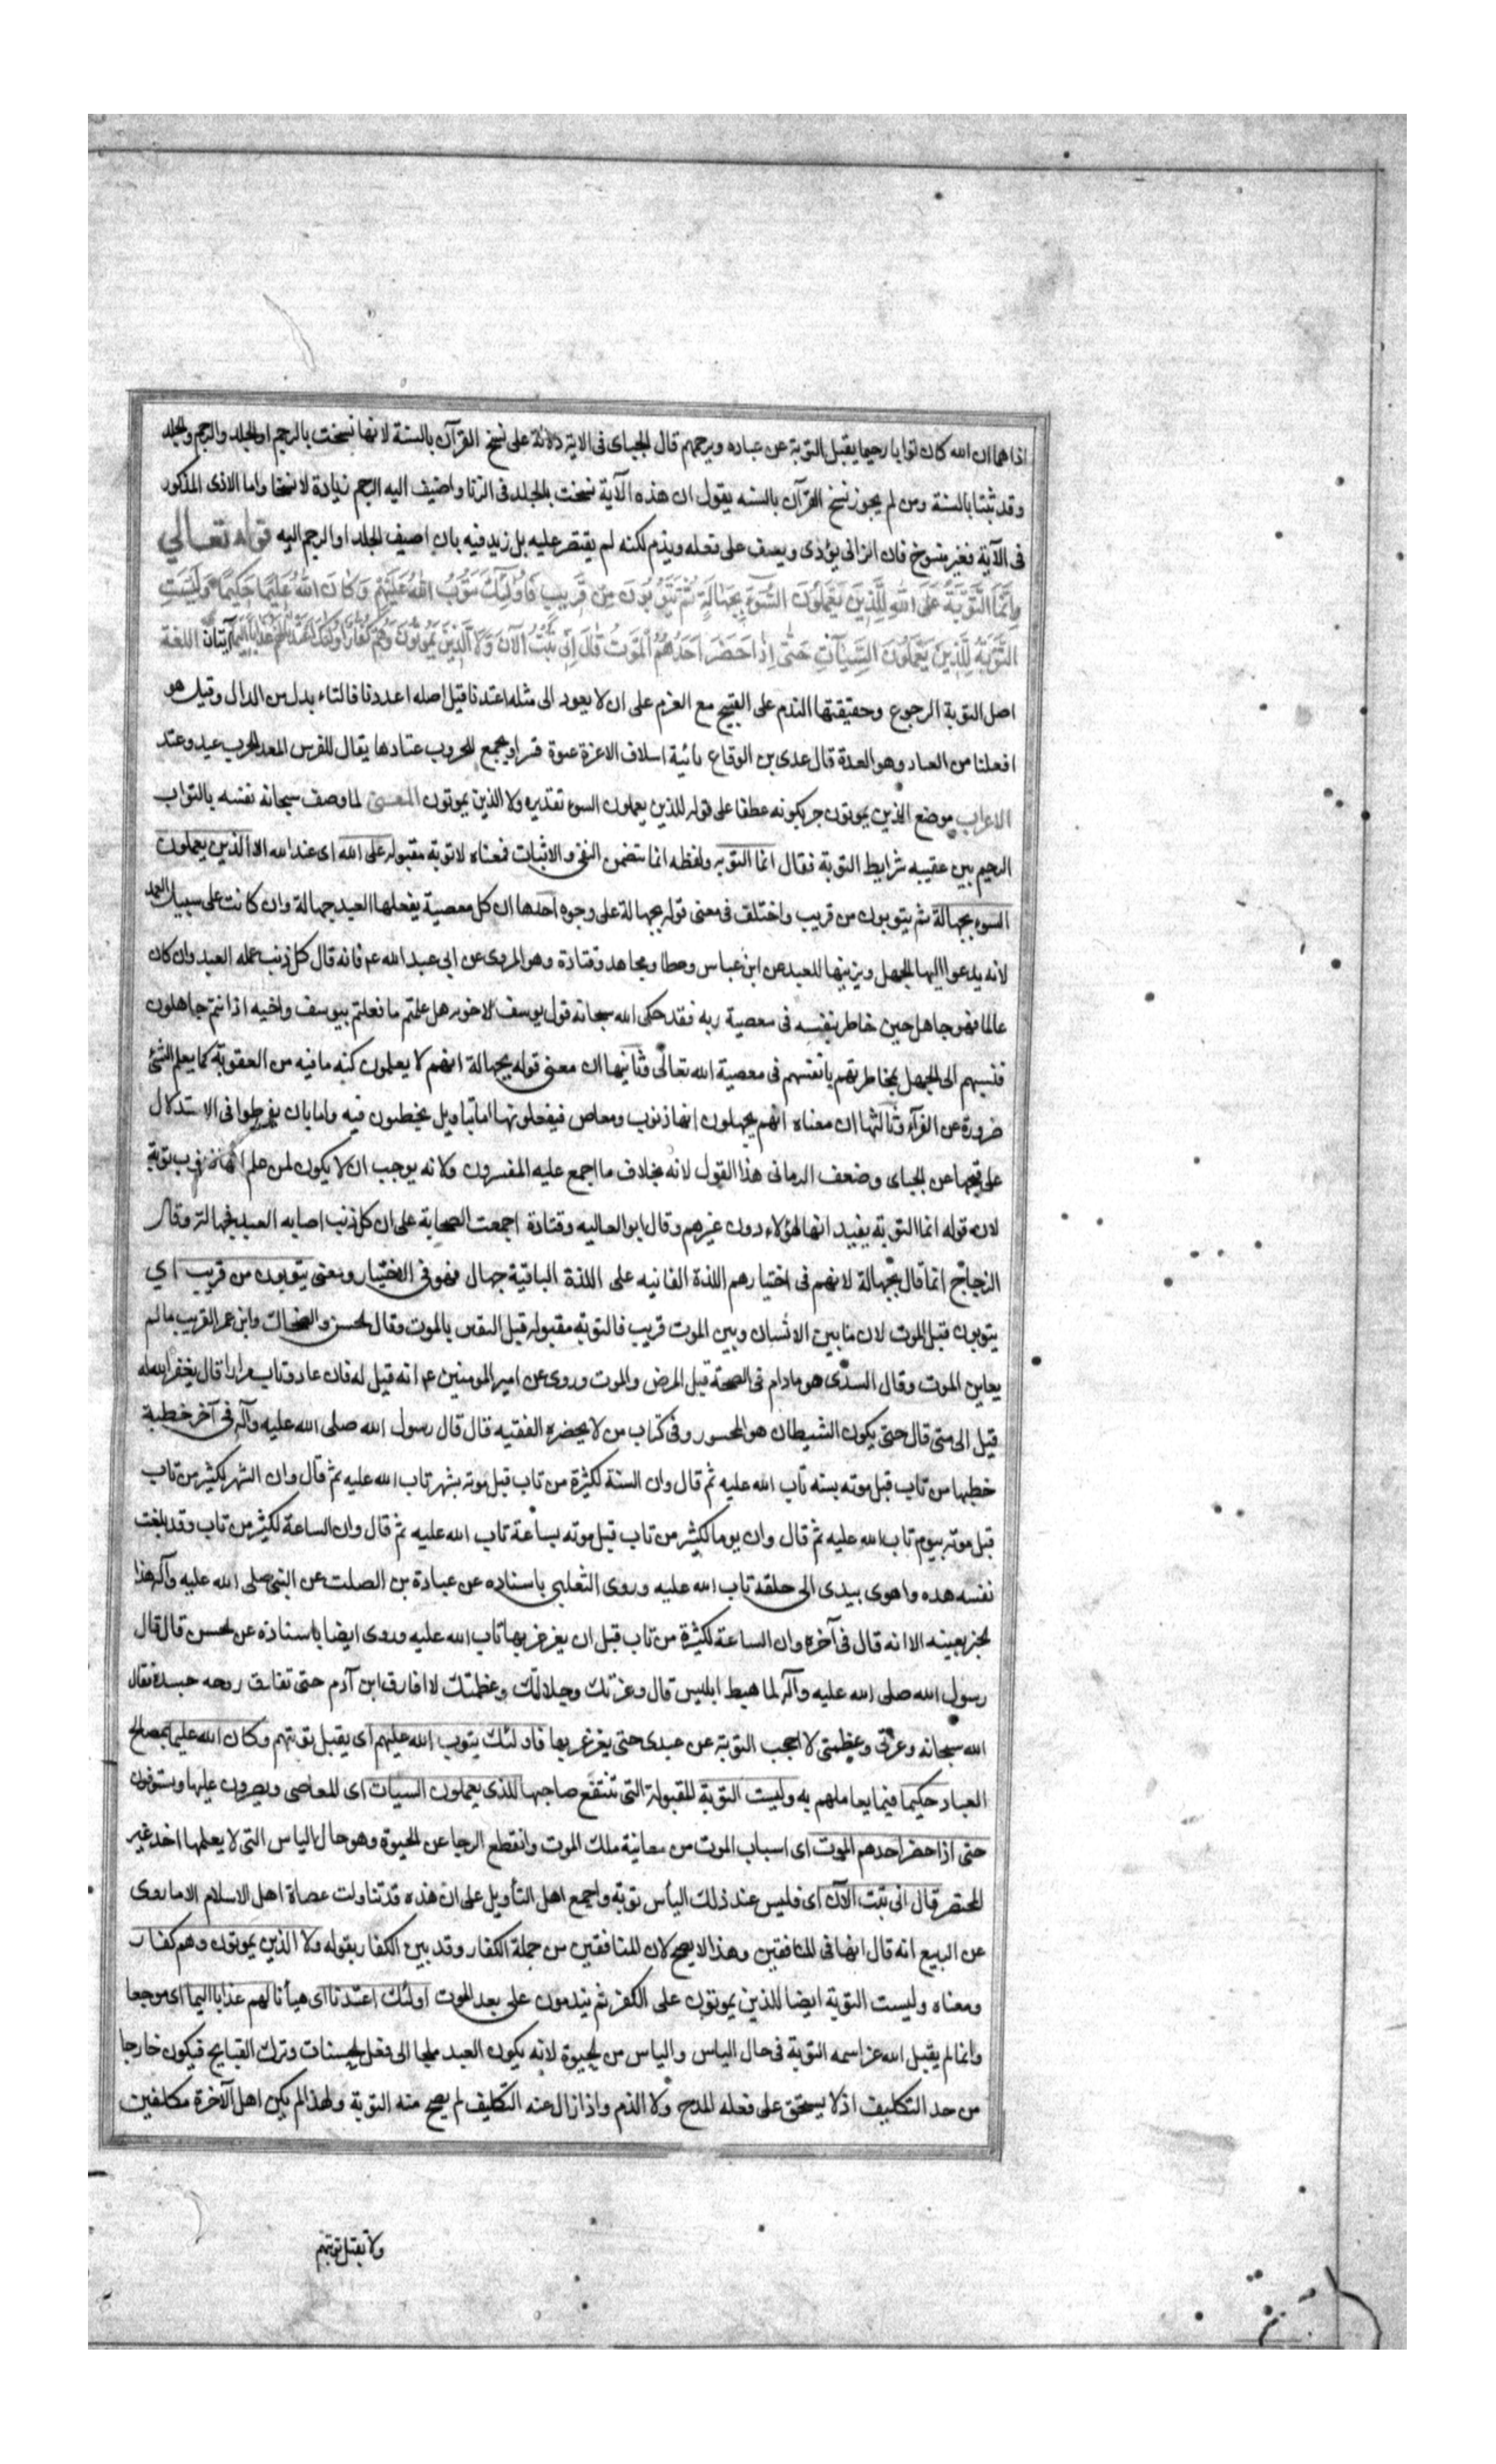 اذاهما ان الله كان توابا رحيما يقبل التوبة عن عباده ويرحمهم قال الجباى فى الاية دلالة على نسخ القرآن بالسنة لانها نسخت بالرجم او الجلد والرجم والجلد
وقد ثبتا بالسنة ومن لم يجوز نسخ القرآن بالسنه يقول ان هذه الآية نسخت بالجلد فى الزنا واضيف اليه الرجم زيادة لا نسخا واما الاذى المذكور
فى الآية فغير منسوخ فان الزانى يؤذى ويعنف على فعله ويذم لكنه لم يقتصر عليه بل زيد فيه بان اضيف الجلد او الرجم اليه قوله تعالي
اِنَّمَا التَّوْبَةُ عَلَى اللهِ لِلَّذِينَ يَعْمَلُونَ السُّوءَ بِجَهَالَةٍ ثُمَّ يَتُوبُونَ مِن قَرِيبٍ فَاُولٰئِكَ يَتُوبُ اللهُ عَلَيْهِمْ وَكَانَ اللهُ عَلِيمًا حَكِيمًا وَلَيْسَتِ
التَّوْبَةُ لِلَّذِينَ يَعْمَلُونَ السَّيِّئَاتِ حَتّٰى اِذَا حَضَرَ اَحَدَهُمُ الْمَوْتُ قَالَ اِنِّى تُبْتُ الْآنَ وَلَا الَّذِينَ يَمُوتُونَ وَهُمْ كُفَّارٌ اُولٰئِكَ اَعْتَدْنَا لَهُمْ عَذَابًا اَلِيمًا آيتان اللغة
اصل التوبة الرجوع وحقيقتها الندم على القبيح مع العزم على ان لا يعود الى مثله اعتدنا قيل اصله اعددنا فالتاء بدل من الدال وقيل هو
افعلنا من العتاد وهو العدة قال عدى بن الوقاع اسلاف الاعزة عنوة للحروب عتادها يقال للفرس المعد للحرب عتيد وعتد
الاعراب موضع الذين يموتون جر بكونه عطفا على قوله للذين يعملون السوء تقديره ولا الذين يموتون المعنى لما وصف سبحانه نفسه بالتواب
الرحيم بين عقيبه شرايط التوبة فقال انما التوبه ولفظه انما يتضمن النفى والاثبات فمعناه لا توبة مقبوله على الله اى عند الله الا الذين يعملون
السوء بجهالة ثم يتوبون من قريب واختلف فى معنى قوله بجهالة على وجوه احدها ان كل معصية يفعلها العبد جهالة وان كانت على سبيل العمد
لانه يدعوا اليها الجهل ويزينها للعبد عن ابن عباس وعطا ومجاهد وقتادة وهو المروى عن ابى عبد الله ع فانه قال كل ذنب عمله العبد وان كان
عالما فهو جاهل حين خاطر بنفسه فى معصية ربه فقد حكى الله سبحانه قول يوسف لاخوته هل علمتم ما فعلتم بيوسف واخيه اذ انتم جاهلون
فنسبهم الى الجهل بمخاطرتهم بانفسهم فى معصية الله تعالى وثانيها ان معنى قوله بجهالة انهم لا يعلمون كنه ما فيه من العقوبة كما يعلم الشئ
ضرورة عن الفرآء وثالثها ان معناه انهم يجهلون انها ذنوب ومعاص فيفعلونها اما بتاويل يخطئون فيه واما بان يفرطوا فى الاستدلال
على قبحها عن الجباى وضعف الرمانى هذا القول لانه بخلاف ما اجمع عليه المفسرون ولانه يوجب ان لا يكون لمن علم انها ذنوب توبة
لان قوله انما التوبة يفيد انها لهؤلاء دون غيرهم وقال ابو العاليه وقتادة اجمعت الصحابة على ان كل ذنب اصابه العبد فبجهالة وقال
الزجاج انما قال بجهالة لانهم فى اختيارهم اللذة الفانيه على اللذة الباقية جهال فهو فى الاختيار ومعنى يتوبون من قريب اي
يتوبون قبل الموت لان ما بين الانسان وبين الموت قريب فالتوبة مقبوله قبل اليقين بالموت وقال الحسن والضحاك وابن عمر القريب ما لم
يعاين الموت وقال السدى هو مادام فى الصحة قبل المرض والموت وروى عن امير المومنين ع انه قيل له فان عاد وتاب مرارا قال يغفر الله له
قيل الى متى قال حتى يكون الشيطان هو المحسور وفى كتاب من لا يحضره الفقيه قال قال رسول الله صلى الله عليه وآله فى آخر خطبة
خطبها من تاب قبل موته بسنه تاب الله عليه ثم قال وان السنة لكثيرة من تاب قبل موته بشهر تاب الله عليه ثم قال وان الشهر لكثير من تاب
قبل موته بيوم تاب الله عليه ثم قال وان يوما لكثير من تاب قبل موته بساعة تاب الله عليه ثم قال وان الساعة لكثير من تاب وقد بلغت
نفسه هذه واهوى بيدى الى حلقه تاب الله عليه وروى الثعلبى باسناده عن عبادة بن الصلت عن النبى صلى الله عليه وآله هذا
لخبر بعينه الا انه قال فى آخره وان الساعة لكثيرة من تاب قبل ان يغرغر بها تاب الله عليه وروى ايضا باسناده عن الحسن قال قال
رسول الله صلى الله عليه وآله لما هبط ابليس قال وعزتك وجلالتك وعظمتك لا افارق ابن آدم حتى تفارق روحه جسده فقال
الله سبحانه وعزتى وعظمتى لا احجب التوبة عن عبدى حتى يغرغر بها فاولئك يتوب الله عليهم اى يقبل توبتهم وكان الله عليما بمصالح
العباد حكيما فيما يعاملهم به وليست التوبة المقبولة التى تنتفع صاحبها للذى يعملون السيات اى المعاصى ويصرون عليها ويسوفون
حتى اذا حضر احدهم الموت اى اسباب الموت من معاينة ملك الموت وانقطع الرجا عن الحيوة وهو حال الياس التى لا يعلمها احد غير
المحتضر قال انى تبت الآن اى فليس عند ذلك اليأس توبة واجمع اهل التأويل على ان هذه قد تناولت عصاة اهل الاسلام الا ما روى
عن الربيع انه قال انها فى المنافقين وهذا لا يصح لان المنافقين من جملة الكفار وقد بين الكفار بقوله ولا الذين يموتون وهم كفار
ومعناه وليست التوبة ايضا للذين يموتون على الكفر ثم يندمون على بعد الموت اولئك اعتدنا اى هيأنا لهم عذابا اليما اى موجعا
وانما لم يقبل الله عز اسمه التوبة فى حال الياس والياس من الحيوة لانه يكون العبد ملجا الى فعل الحسنات وترك القبايح فيكون خارجا
من حد التكليف اذ لا يستحق على فعله المدح ولا الذم واذا زال عنه التكليف لم يصح منه التوبة ولهذا لم يكن اهل الآخرة مكلفين
ولا يقبل توبتهم